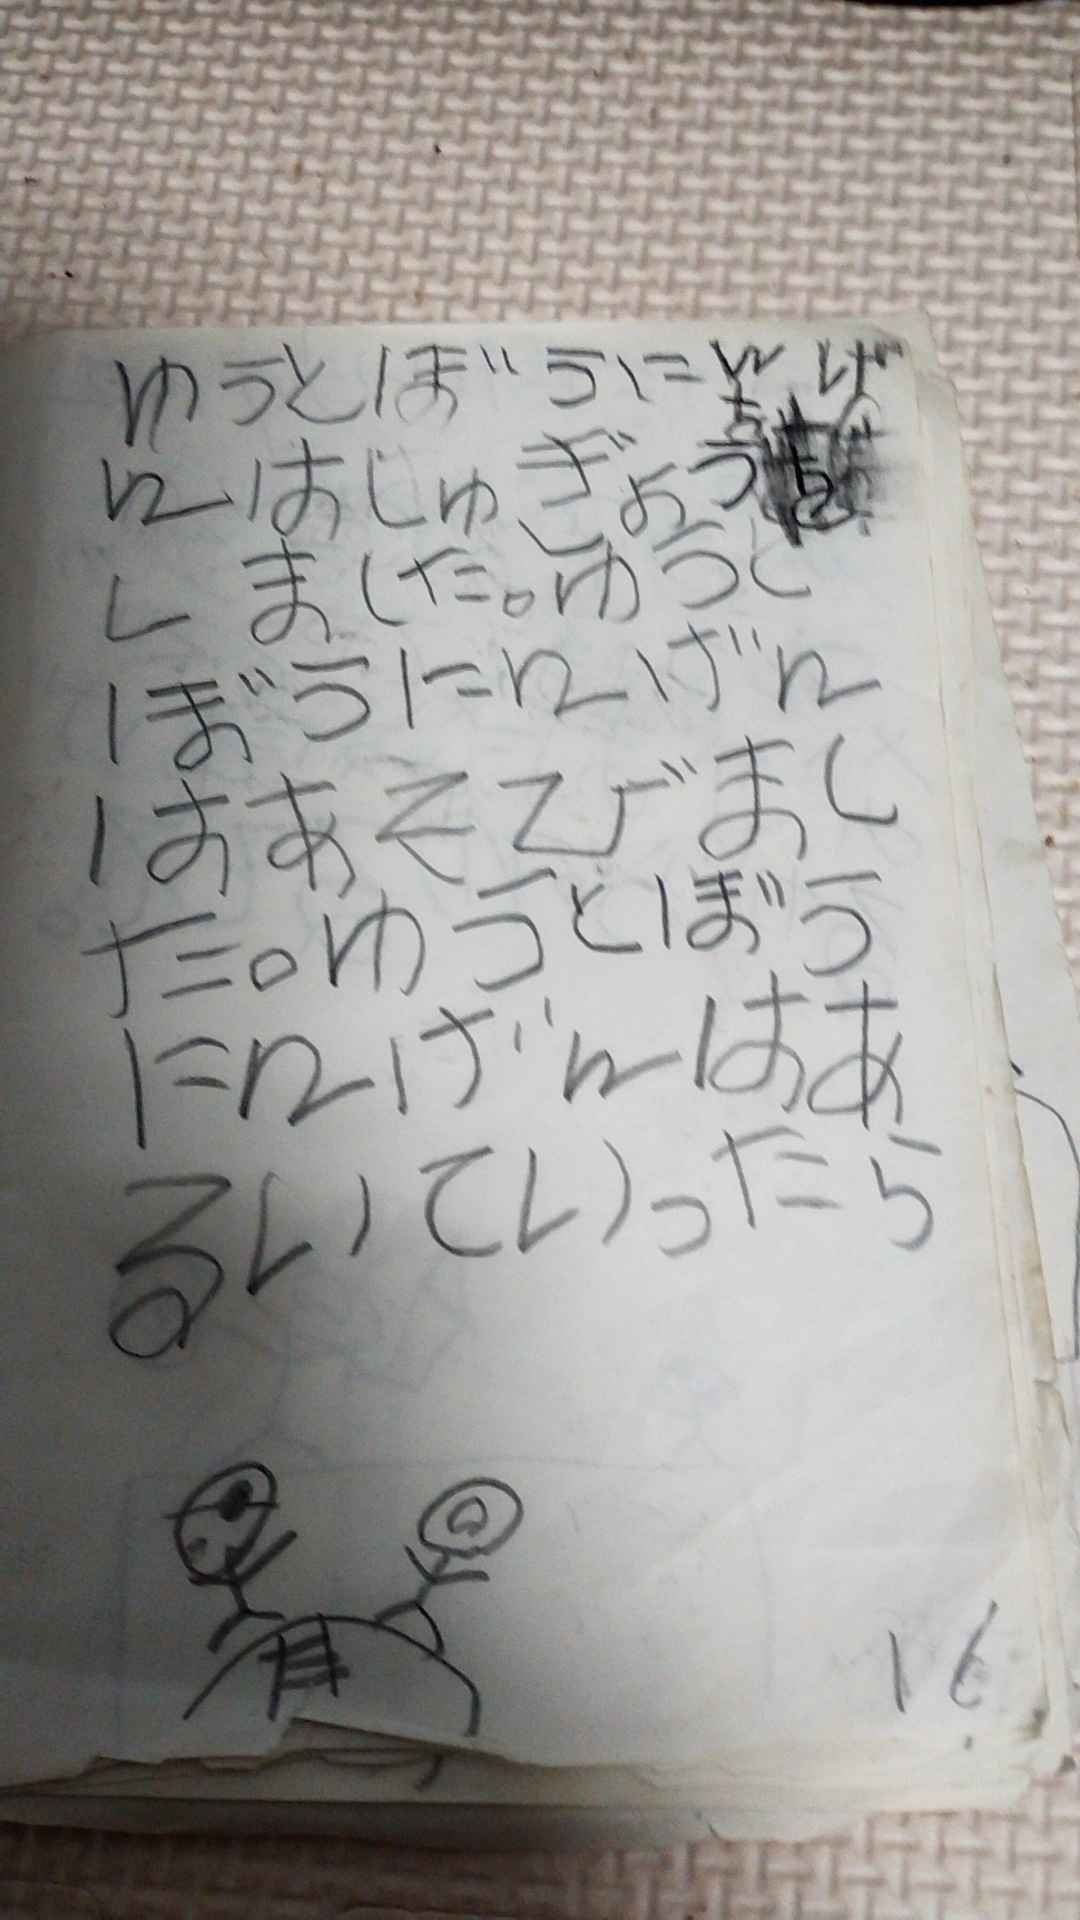 ゆうとぼうにんげ
んはじゅぎょうを
しました。ゆうと
ぼうにんげん
はあそてびまし
た。ゆうとぼう
にんげんはあ
るいていったら
16